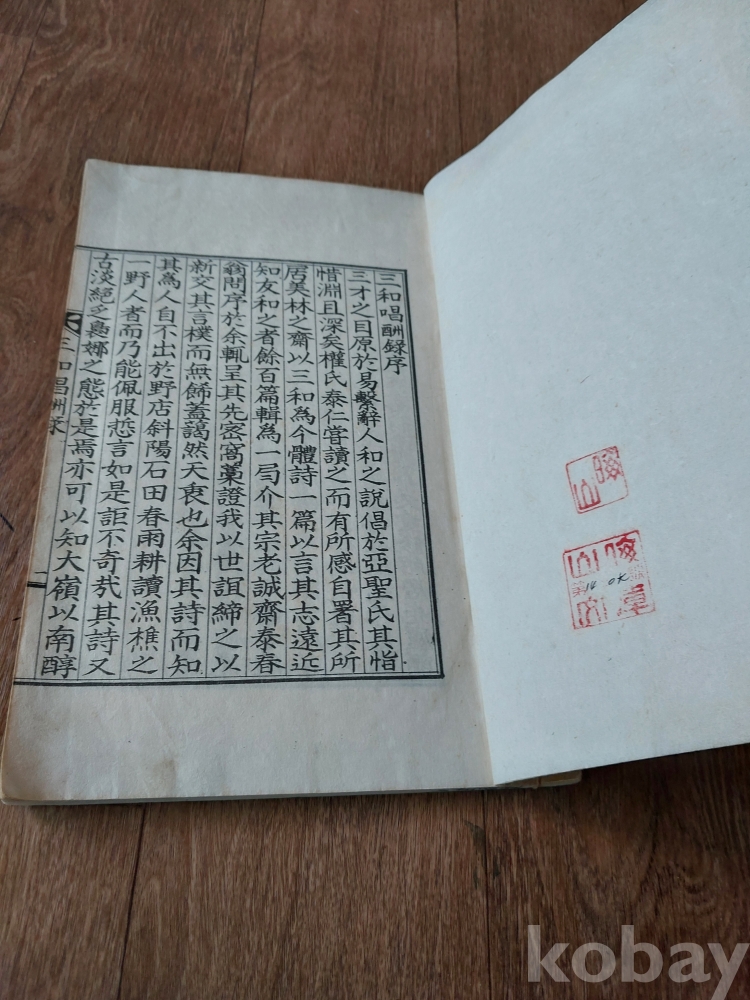 三和唱酬錄序
三才之目原於易繫辭人和之說倡於亞聖氏其恉
恉淵且深矣權氏泰仁嘗讀之而有所感自署其所
居美林之齋以三和為今體詩一篇以言其志遠近
知友和之者餘百篇輯為一局介其宗老誠齋泰春
翁問序於余輒呈其先密窩藁證我以世誼締之以
新交其言樸而無餙蓋藹然天衷也余因其詩而知
其為人自不出於野店斜陽石田春雨耕讀漁樵之
一野人者而乃能佩服悊言如是詎不奇㢤其詩又
古淡絕乏裊娜之態於是焉亦可以知大嶺以南醇
三和唱酬錄
一
OK
kobay